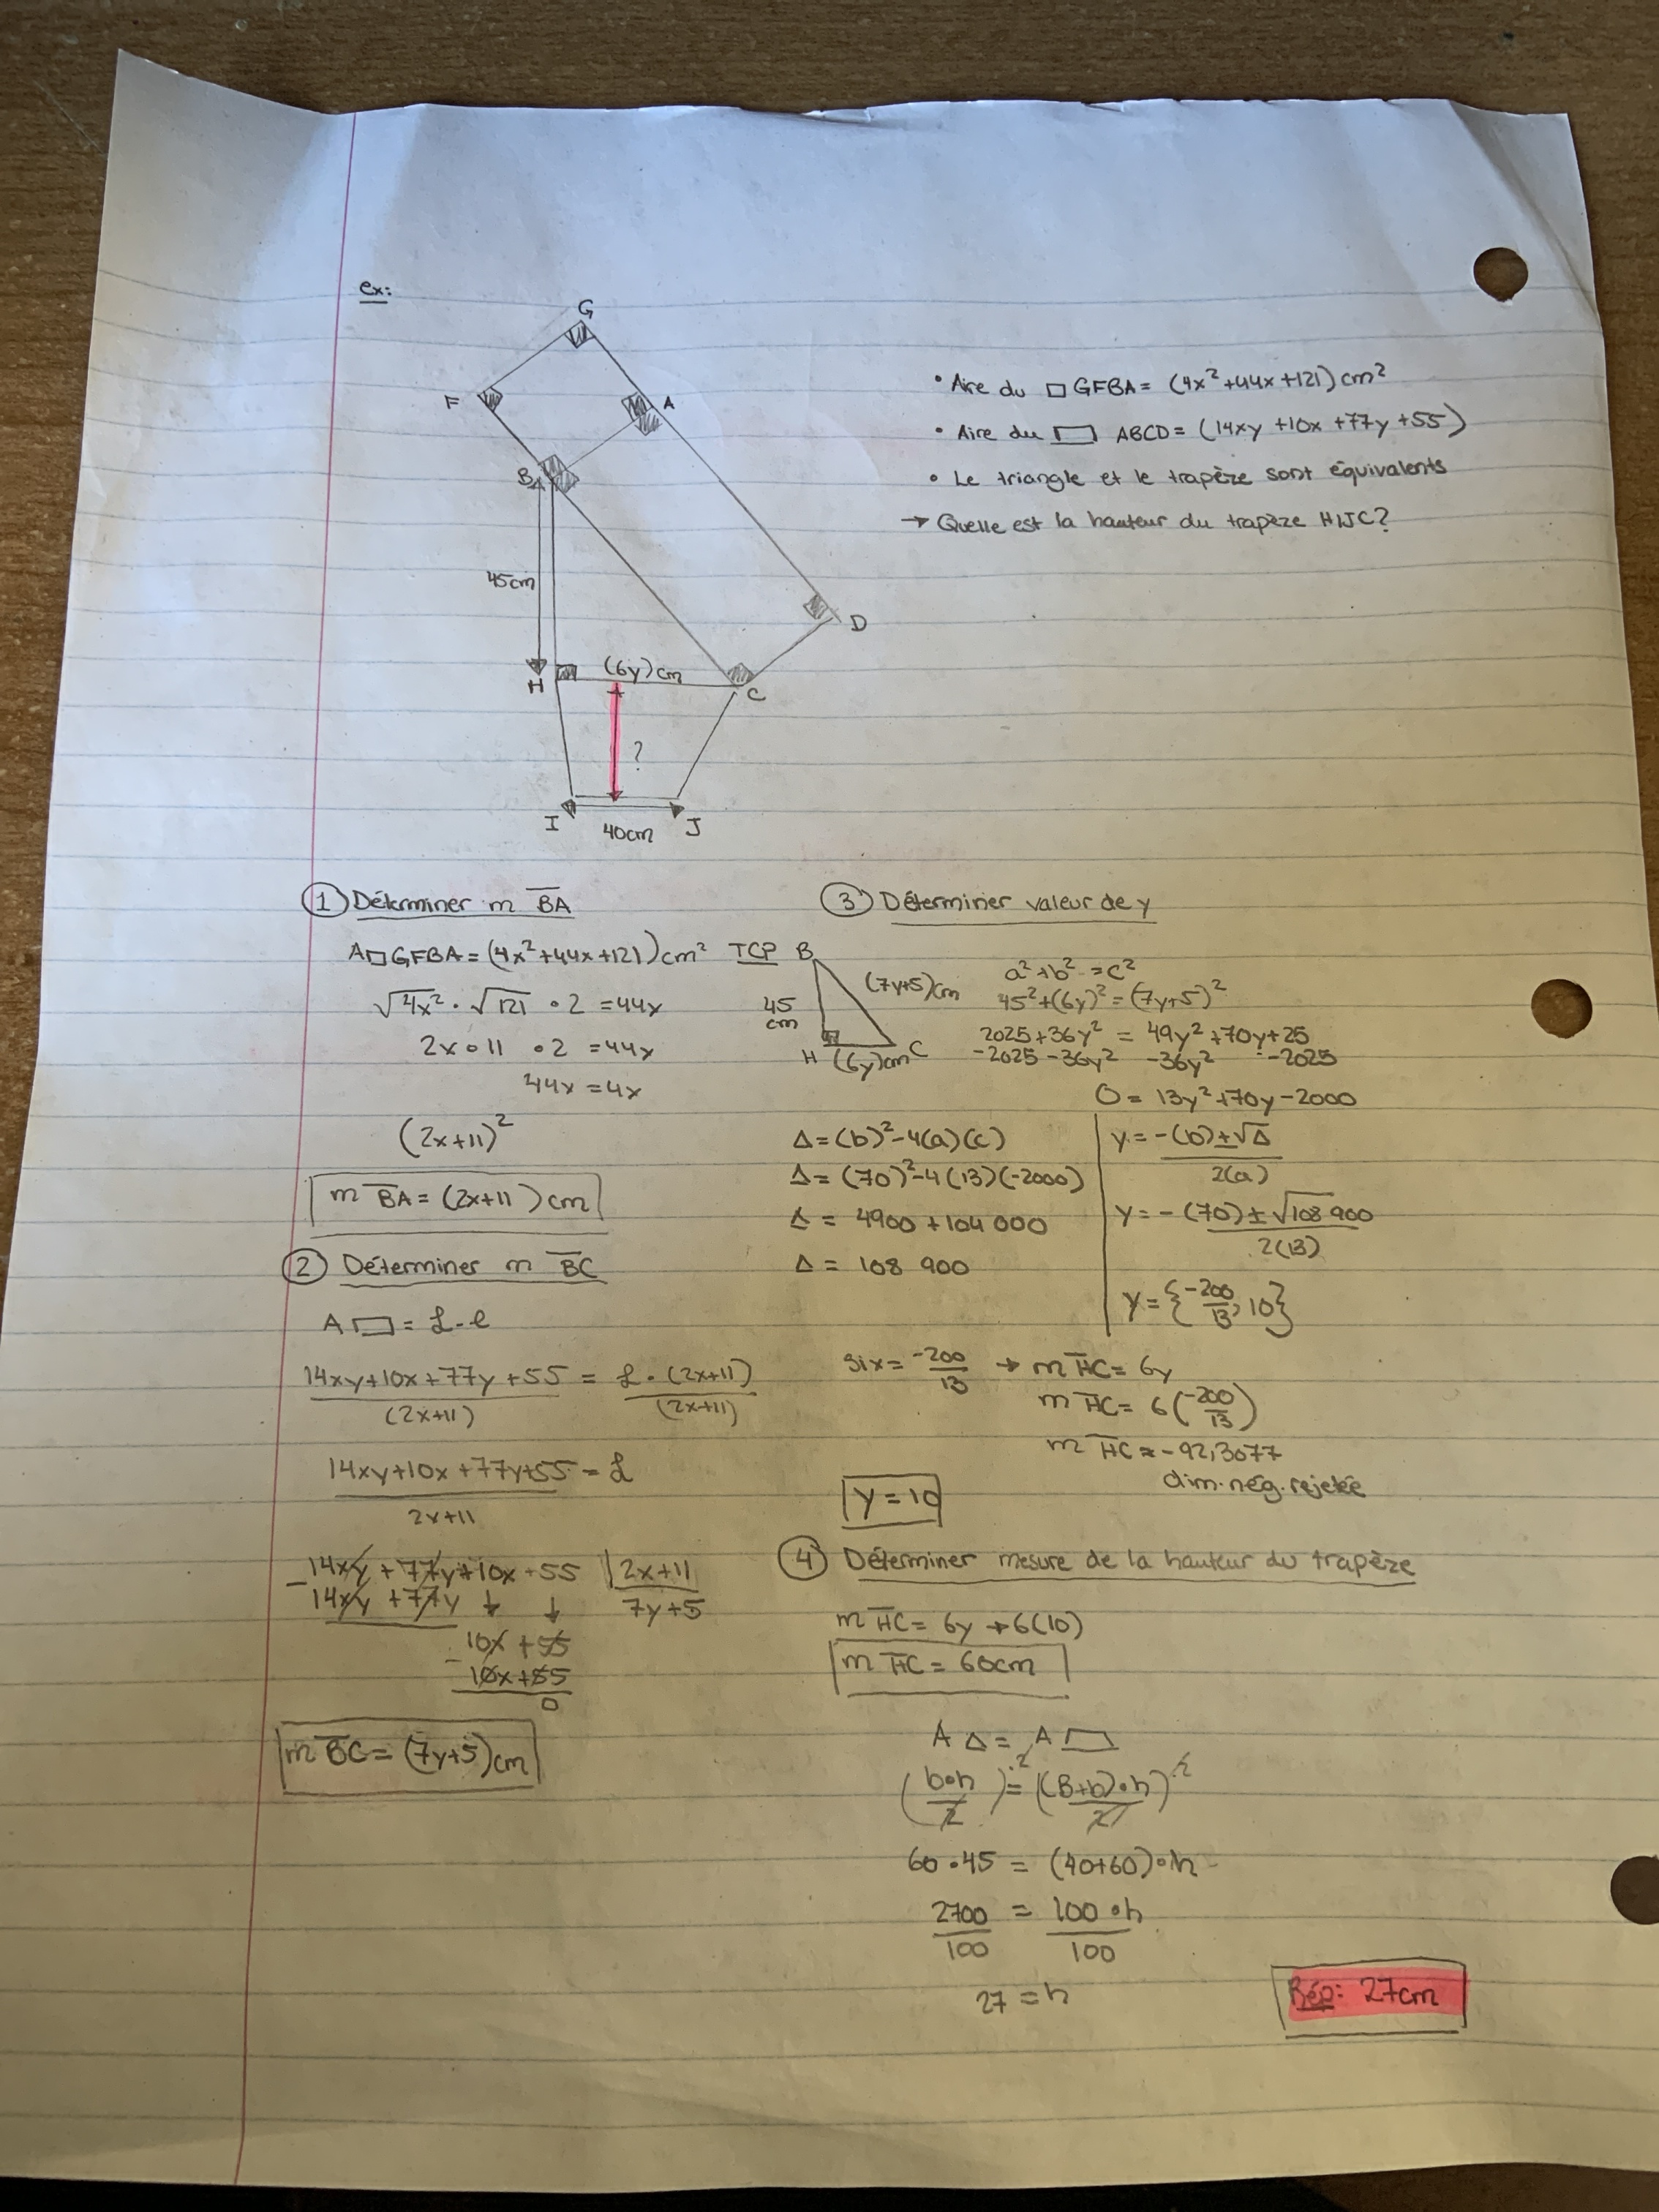 ex:
G
F
A
B
45cm
D
H
(6y)cm
C
?
I
40cm
J
• Aire du □ GFBA = (4x²+44x+121)cm²
• Aire du ▭ ABCD = (14xy +10x +77y +55)
• Le triangle et le trapèze sont équivalents
→ Quelle est la hauteur du trapèze HIJC?
① Déterminer m BA
A□GFBA = (4x²+44x+121)cm²
√4x² • √121 • 2 = 44x
2x • 11 • 2 = 44x
44x = 4x
(2x+11)²
m BA = (2x+11)cm
② Déterminer m BC
A ▭ = L • l
14xy+10x+77y+55 = L • (2x+11)
(2x+11) (2x+11)
14xy+10x+77y+55 = L
2x+11
14xy + 77y +10x +55 | 2x+11
- 14xy +77y ↓ ↓ 7y+5
10x +55
- 10x+55
0
m BC = (7y+5)cm
③ Déterminer valeur de y
TCP
B
(7y+5)cm
45
cm
H (6y)cm C
a²+b² = c²
45²+(6y)² = (7y+5)²
2025+36y² = 49y²+70y+25
-2025 -36y² -36y² -2025
0 = 13y²+70y-2000
Δ = (b)²-4(a)(c)
Δ = (70)²-4(13)(-2000)
Δ = 4900 +104 000
Δ = 108 900
y = -(b)±√Δ
2(a)
y = -(70)±√108 900
2(13)
y = {-200/13, 10}
si x = -200/13 → m HC = 6y
m HC = 6(-200/13)
m HC ≈ -92,3077
dim. nég. rejetée
y = 10
④ Déterminer mesure de la hauteur du trapèze
m HC = 6y → 6(10)
m HC = 60cm
A △ = A ▭
(b•h/2)•2 = ((B+b)•h/2)•2
60 • 45 = (40+60)•h
2700 = 100 • h
100 100
27 = h
Rép: 27cm